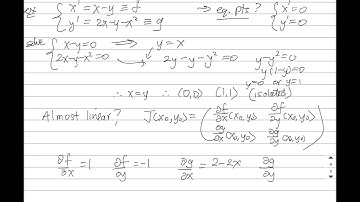 x' = x-y ≡ f ⇒ eq. pts? { x'=0
y' = 2x-y-x² ≡ g y'=0
solve { x-y=0 ⇒ y=x
2x-y-x²=0 2y-y-y²=0 y-y²=0
y(1-y)=0
y=0 or y=1
∴ x=y ∴ (0,0) (1,1) (isolated)
Almost linear? J(x₀,y₀) = ( ∂f/∂x (x₀,y₀) ∂f/∂y (x₀,y₀)
∂g/∂x (x₀,y₀) ∂g/∂y (x₀,y₀) )
∂f/∂x = 1 ∂f/∂y = -1 ∂g/∂x = 2-2x ∂g/∂y